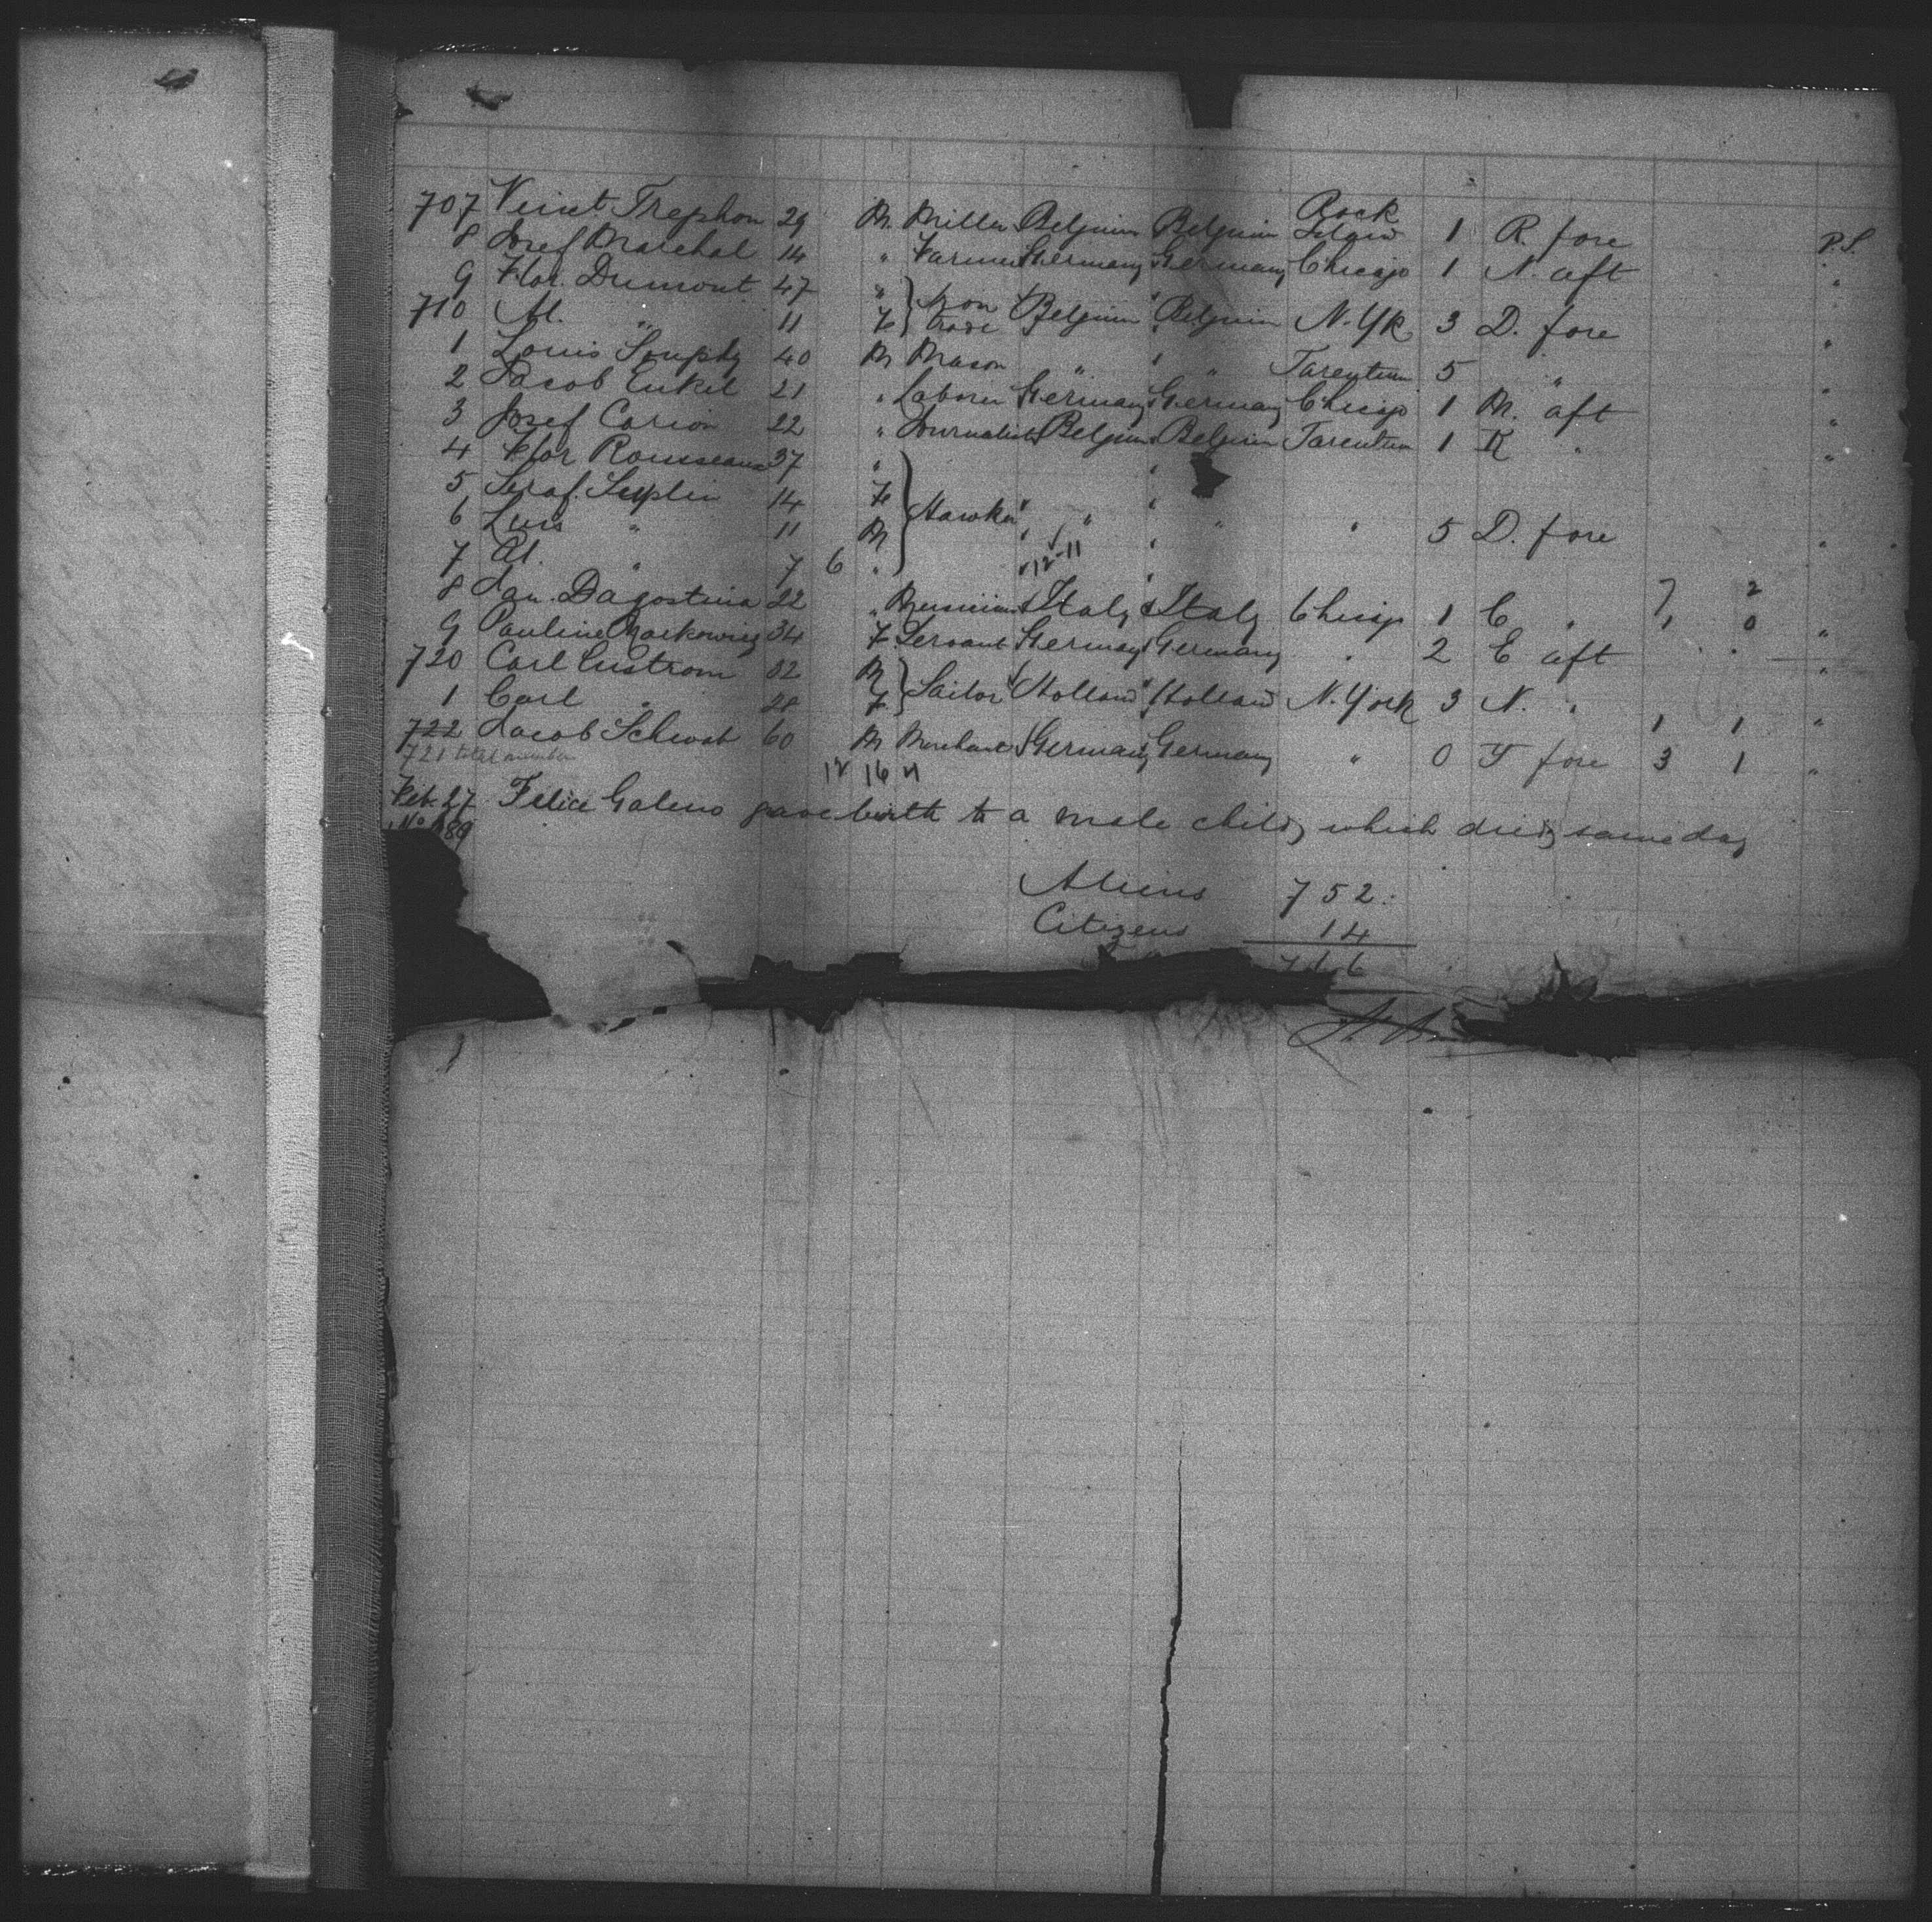 707 Vinct. Trephon 29 M. Miller Belgium Belgium Rock Island 1 R. fore P.S.
8 Josef Marchal 14 " Farmer Germany Germany Chicago 1 N. aft "
9 Flor. Dumont 47 "
710 Al. " 11 F Iron trade Belgium Belgium N.Yk 3 D. fore "
1 Louis 40 M Mason " " Tarentum 5 " "
2 Jacob Enkel 21 " Laborer Germany Germany Chicago 1 M. aft "
3 Josef Carion 22 " Journalist Belgium Belgium Tarentum 1 K " "
4 Flor Rousseaux 37 "
5 Seraf. 14 F Hawker
6 Luis " 11 M " " " 5 D. fore "
7 Al. " 7 6 " 12-11
8 Dagostina 22 " Musician Italy Italy Chicago 1 C " 7 2 "
9 Pauline Markowicz 34 F Servant Germany Germany " 2 E aft 1 0 "
720 Carl Enstrom 32 M
1 Carl " 28 F Sailor Holland Holland N.York 3 N. " 1 1 "
722 Jacob Schwob 60 M Merchant Germany Germany " 0 F fore 3 1 "
721 total number
12 16 11
Feb. 27 Felice Galeno gave birth to a male child, which died same day
No 689
Aliens 752.
Citizens 14
766